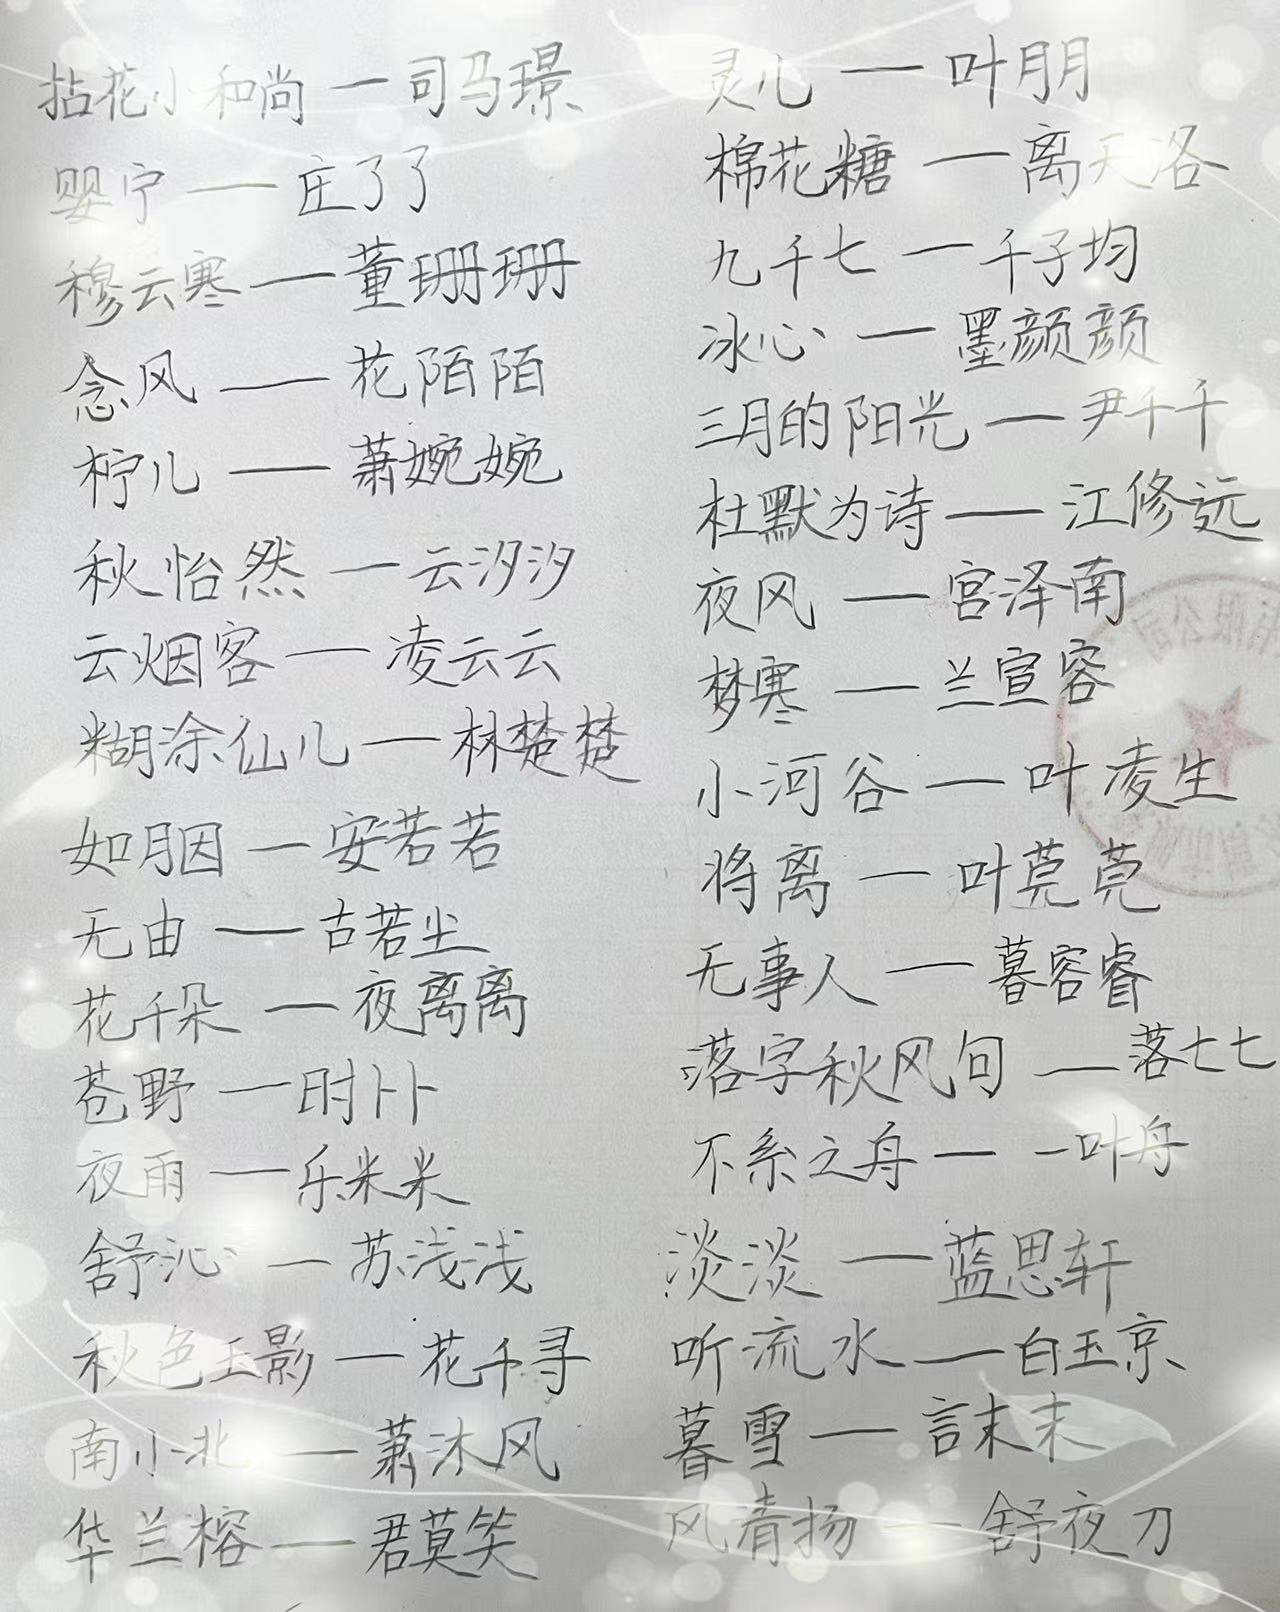 拈花小和尚 — 司马璟
婴宁 — 庄了了
穆云寒 — 董珊珊
念风 — 花陌陌
柠儿 — 萧婉婉
秋怡然 — 云汐汐
云烟客 — 凌云云
糊涂仙儿 — 林楚楚
如月因 — 安若若
无由 — 古若尘
花千朵 — 夜离离
苍野 — 时卜卜
夜雨 — 乐米米
舒沁 — 苏浅浅
秋色玉影 — 花千寻
南小北 — 萧沐风
华兰榕 — 君莫笑
灵儿 — 叶朋
棉花糖 — 离天洛
九千七 — 千子均
冰心 — 墨颜颜
三月的阳光 — 尹千千
杜默为诗 — 江修远
夜风 — 宫泽南
梦寒 — 兰宣容
小河谷 — 叶凌生
将离 — 叶莞莞
无事人 — 暮容睿
落字秋风句 — 落七七
不系之舟 — 一叶舟
淡淡 — 蓝思轩
听流水 — 白玉京
暮雪 — 言末末
风清扬 — 舒夜刀
限公司